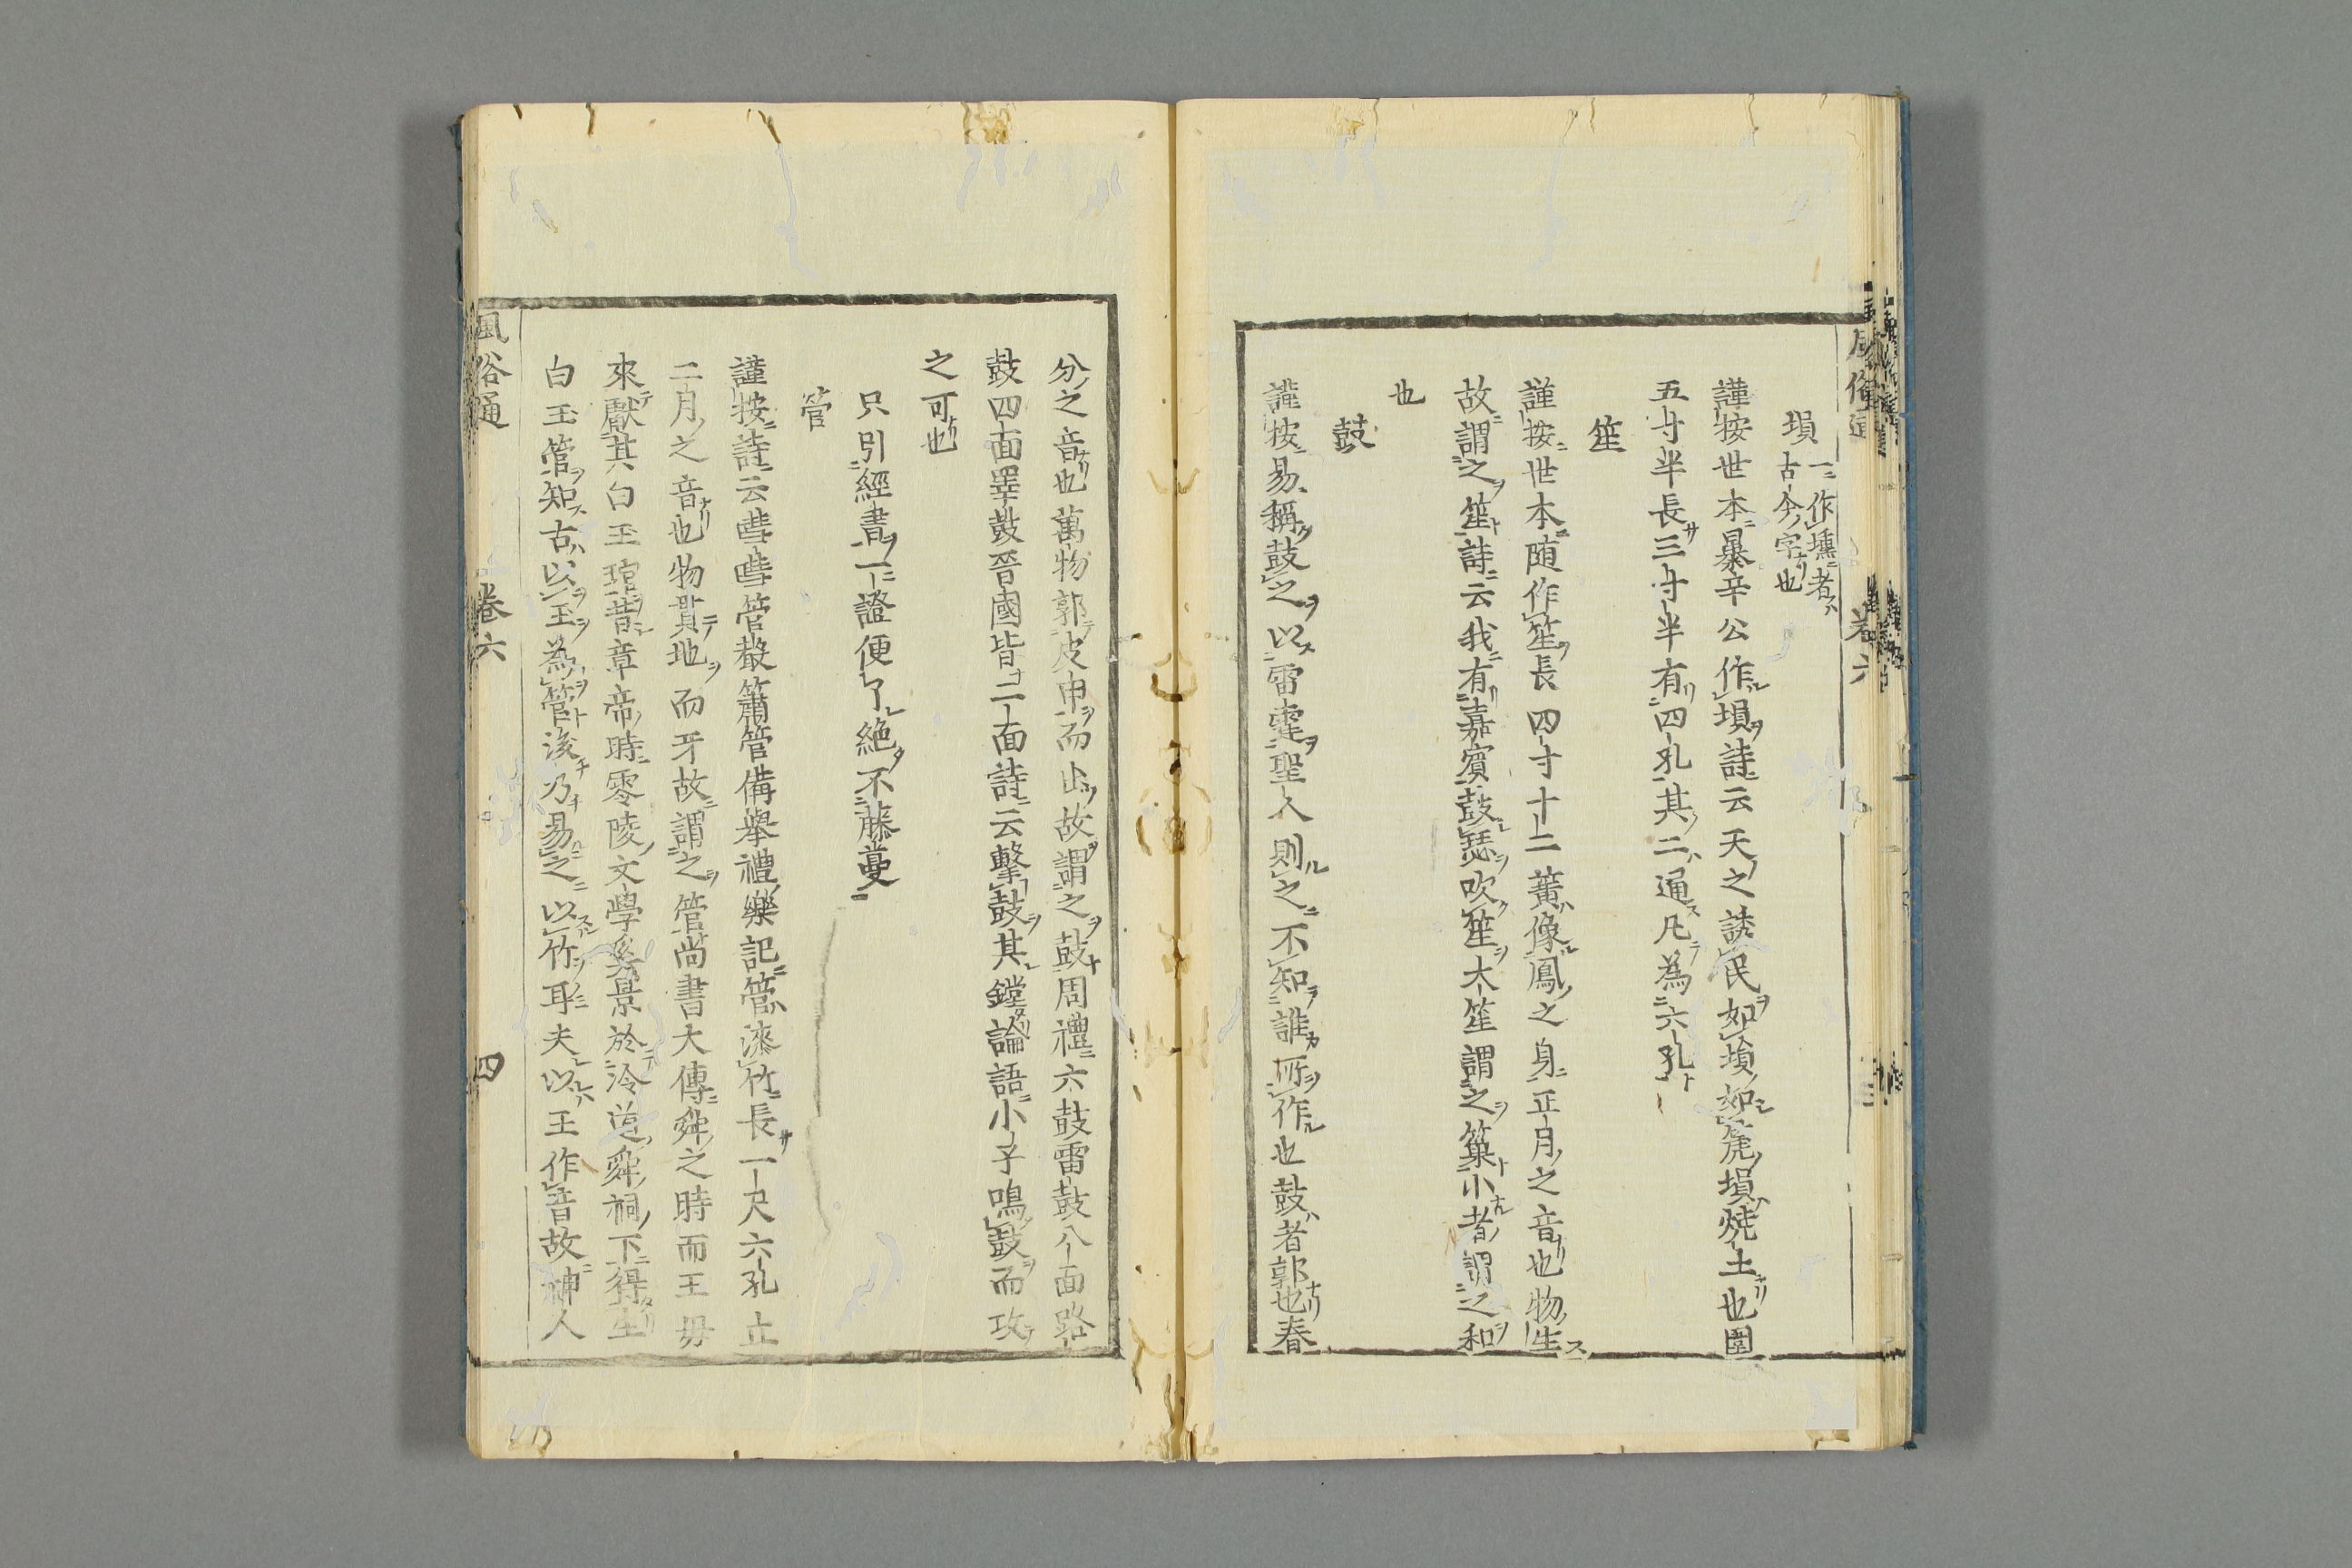 塤
一作壎者
古今字也
謹按世本暴辛公作塤詩云天之誘民如塤如箎塤燒土也圍
五寸半長三寸半有四孔其二通凡為六孔
笙
謹按世本随作笙長四寸十二簧像鳳之身正月之音也物生
故謂之笙詩云我有嘉賓鼓瑟吹笙大笙謂之簗小者謂之和
也
鼓
謹按易稱鼓之以雷霆聖人則之不知誰所作也鼓者郭也春
分之音也萬物郭皮甲而出故謂之鼓周禮六鼓雷鼓八面路
鼓四面鼛鼓晉鼓皆二面詩云擊鼓其鏜論語小子鳴鼓而攻
之可也
只引經書一證便了絶不藤蔓
管
謹按詩云嘒嘒管聲簫管備舉禮樂記管漆竹長一尺六孔十
二月之音也物貫地而牙故謂之管尚書大傳舜之時而王毋
來獻其白玉琯昔章帝時零陵文學奚景於泠道舜祠下得生
白玉管知古以玉為管後乃易之以竹耳夫以王作音故神人
風俗通
卷六
四